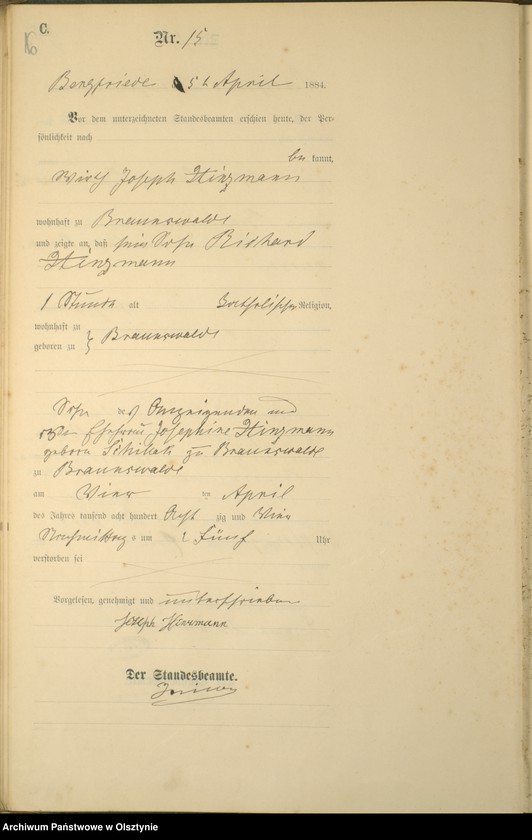 C.
16
Nr. 15
Bergfriede, 5t April 1884.
Vor dem unterzeichneten Standesbeamten erschien heute, der Per-
sönlichkeit nach
be kannt,
Wirth Joseph Hinzmann
wohnhaft zu Braunswalde
und zeigte an, daß sein Sohn Richard
Hinzmann
1 Stunde alt katholischer Religion,
wohnhaft zu
geboren zu } Braunswalde
Sohn des Anzeigenden und
Ehefrau Josephine Hinzmann
geborn zu Braunswalde
zu Braunswalde
am Vier ten April
des Jahres tausend acht hundert Acht zig und Vier
Nachmittag s um Fünf Uhr
verstorben sei
Vorgelesen, genehmigt und unterschrieben
Joseph Hinzmann
Der Standesbeamte.
Archiwum Państwowe w Olsztynie